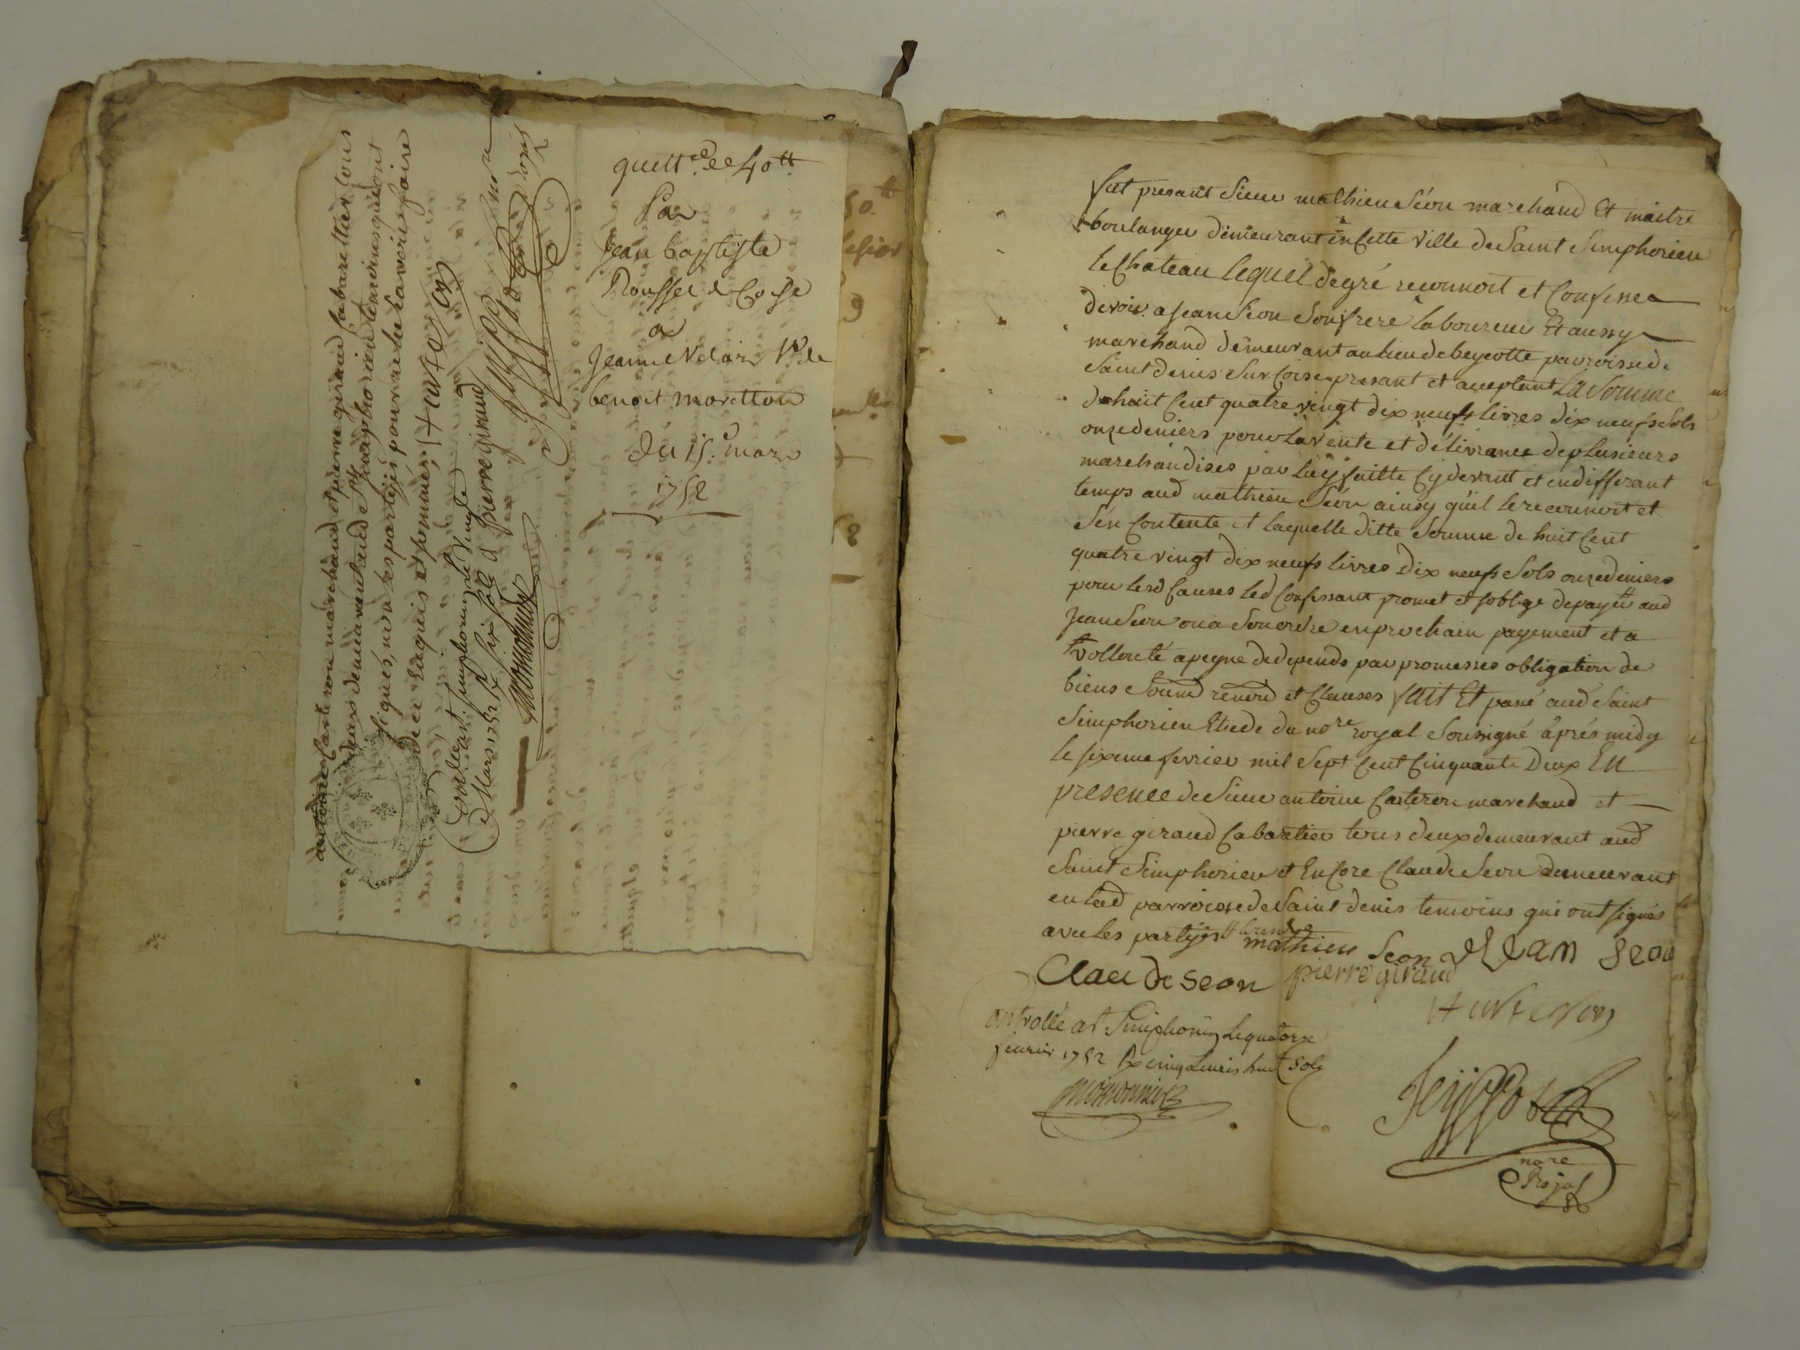 quitt.ce de 40tt
Par
Jean baptiste
Rousset de Coise
a
Jeanne Velain Vve de
benoit moretton
du 15e mars
1752
antoine Carteron marchand et pierre giraud Cabarettier tous
deux demeurants aud St simphorien temoins qui ont
signés, non les partyes pour ne le savoir faire
de ce enquis et sommées
Carteron
pierre giraud
Controllé a st simphorien le vingt
mars 1752
50tt
9
fut presant Sieur mathieu Séon marchand Et maitre
boulanger demeurant en Cette ville de Saint Simphorien
le Chateau lequel de gré reconnoit et Confesse
devoir a Jean Séon Son frere laboureur Et aussy
marchand demeurant au lieu de beycotte parroisse de
Saint denis Sur Coise presant et acceptant La Somme
de huit Cent quatre vingt dix neufs livres dix neufs Sols
onze deniers pour la vente et délivrance de plusieurs
marchandises par luy faitte Cy devant et en differant
temps aud mathieu Séon ainsy qu'il le reconnoit et
S'en Contente et laquelle ditte Somme de huit Cent
quatre vingt dix neufs livres Dix neufs Sols onze deniers
pour lesd Causes led Confessant promet et s'oblige de payer aud
Jean Seon ou a Son ordre en prochain payement et a
volloncté a peyne de depends par promesses obligation de
biens Soumd renond et Clauses fait Et passé aud Saint
Simphorien Etude du nore royal Soussigné âprés midy
le sixieme fevrier mil Sept Cent Cinquante Deux En
presence de Sieur antoine Carteron marchand et
pierre giraud Cabartier tous deux demeurant aud
Saint Simphorien et Encore Claude Seon demeurant
en lad parroisse de Saint denis temoins qui ont signés
avec les partyes
mathieu Seon Jean Seon
Claude seon pierre giraud
Carteron
Controllé a st Simphorien le quatorze
fevrier 1752 Rx cinq Livres huit Sols
nore
Royal